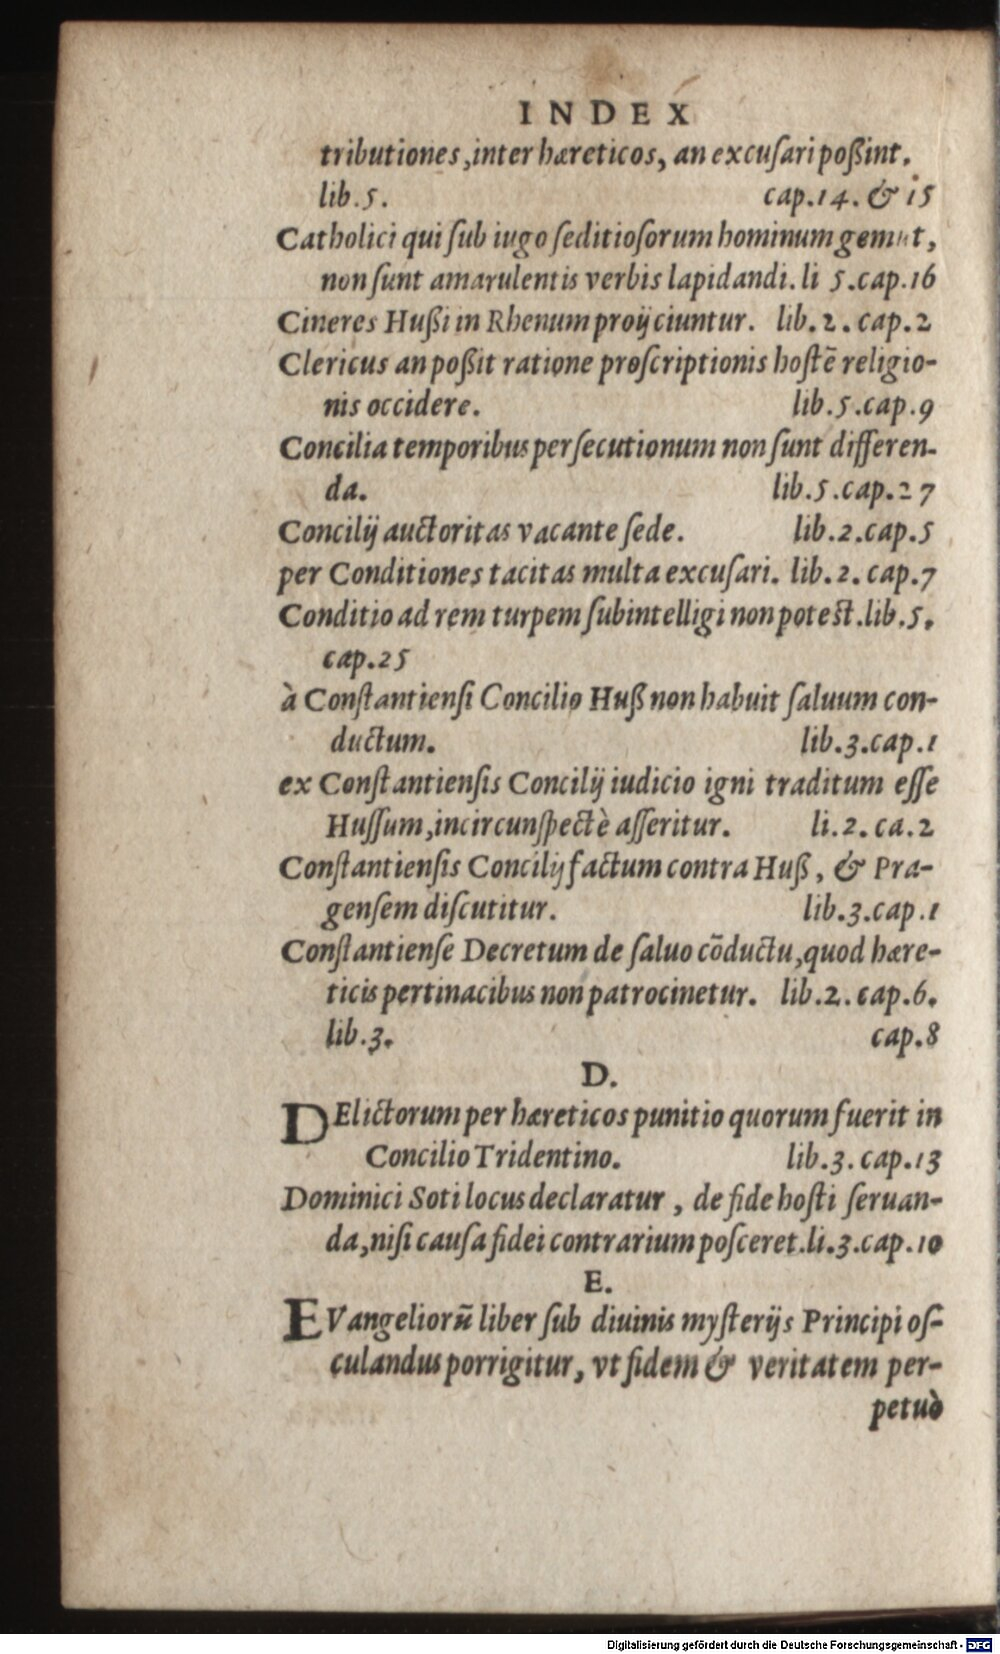 INDEX
tributiones, inter hæreticos, an excuſari poßint.
lib.5. cap.14. & 15
Catholici qui ſub iugo ſeditioſorum hominum gemut,
non ſunt amarulentis verbis lapidandi. li 5.cap.16
Cineres Hußi in Rhenum proijciuntur. lib.2.cap.2
Clericus an poßit ratione proſcriptionis hoſtẽ religio-
nis occidere. lib.5.cap.9
Concilia temporibus perſecutionum non ſunt differen-
da. lib.5.cap.27
Concilij auctoritas vacante ſede. lib.2.cap.5
per Conditiones tacitas multa excuſari. lib.2.cap.7
Conditio ad rem turpem ſubintelligi non poteſt.lib.5.
cap.25
à Conſtantienſi Concilio Huß non habuit ſaluum con-
ductum. lib.3.cap.1
ex Conſtantienſis Concilij iudicio igni traditum eſſe
Huſſum, incircunſpectè aſſeritur. li.2.ca.2
Conſtantienſis Concilij factum contra Huß, & Pra-
genſem diſcutitur. lib.3.cap.1
Conſtantienſe Decretum de ſaluo cõductu, quod hære-
ticis pertinacibus non patrocinetur. lib.2.cap.6.
lib.3. cap.8
D.
DElictorum per hæreticos punitio quorum fuerit in
Concilio Tridentino. lib.3.cap.13
Dominici Soti locus declaratur, de fide hoſti ſeruan-
da, niſi cauſa fidei contrarium poſceret.li.3.cap.10
E.
EVangeliorũ liber ſub diuinis myſterijs Principi oſ-
culandus porrigitur, vt fidem & veritatem per-
petuò
Digitalisierung gefördert durch die Deutsche Forschungsgemeinschaft - DFG